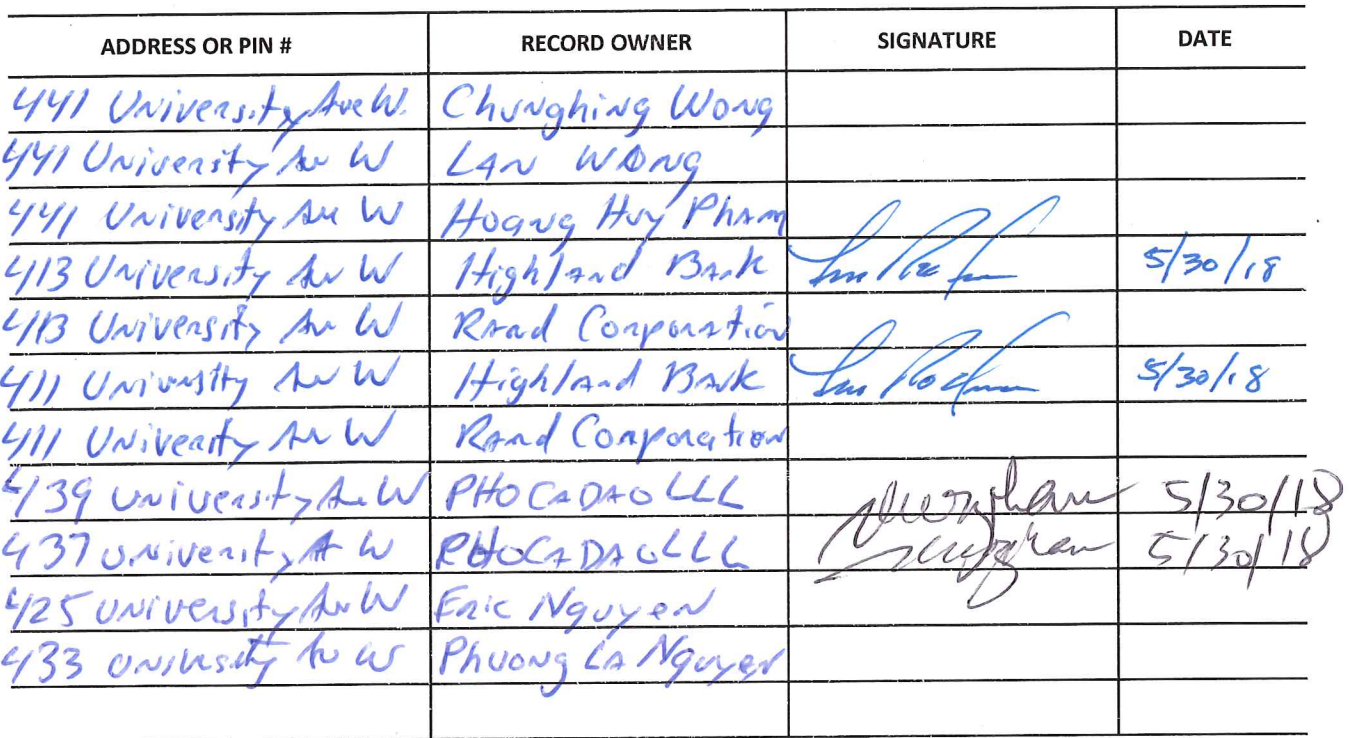 ADDRESS OR PIN # RECORD OWNER SIGNATURE DATE
441 University Ave W. Chunghing Wong
441 University Av W LAN WONG
441 University Av W Hoang Huy Pham
413 University Av W Highland Bank 5/30/18
413 University Av W Rand Corporation
411 University Av W Highland Bank 5/30/18
411 University Av W Rand Corporation
439 University Av W PHO CADAO LLL 5/30/18
437 University A W PHO CADAO LLL 5/30/18
425 University Av W Eric Nguyen
433 University Av W Phuong La Nguyen